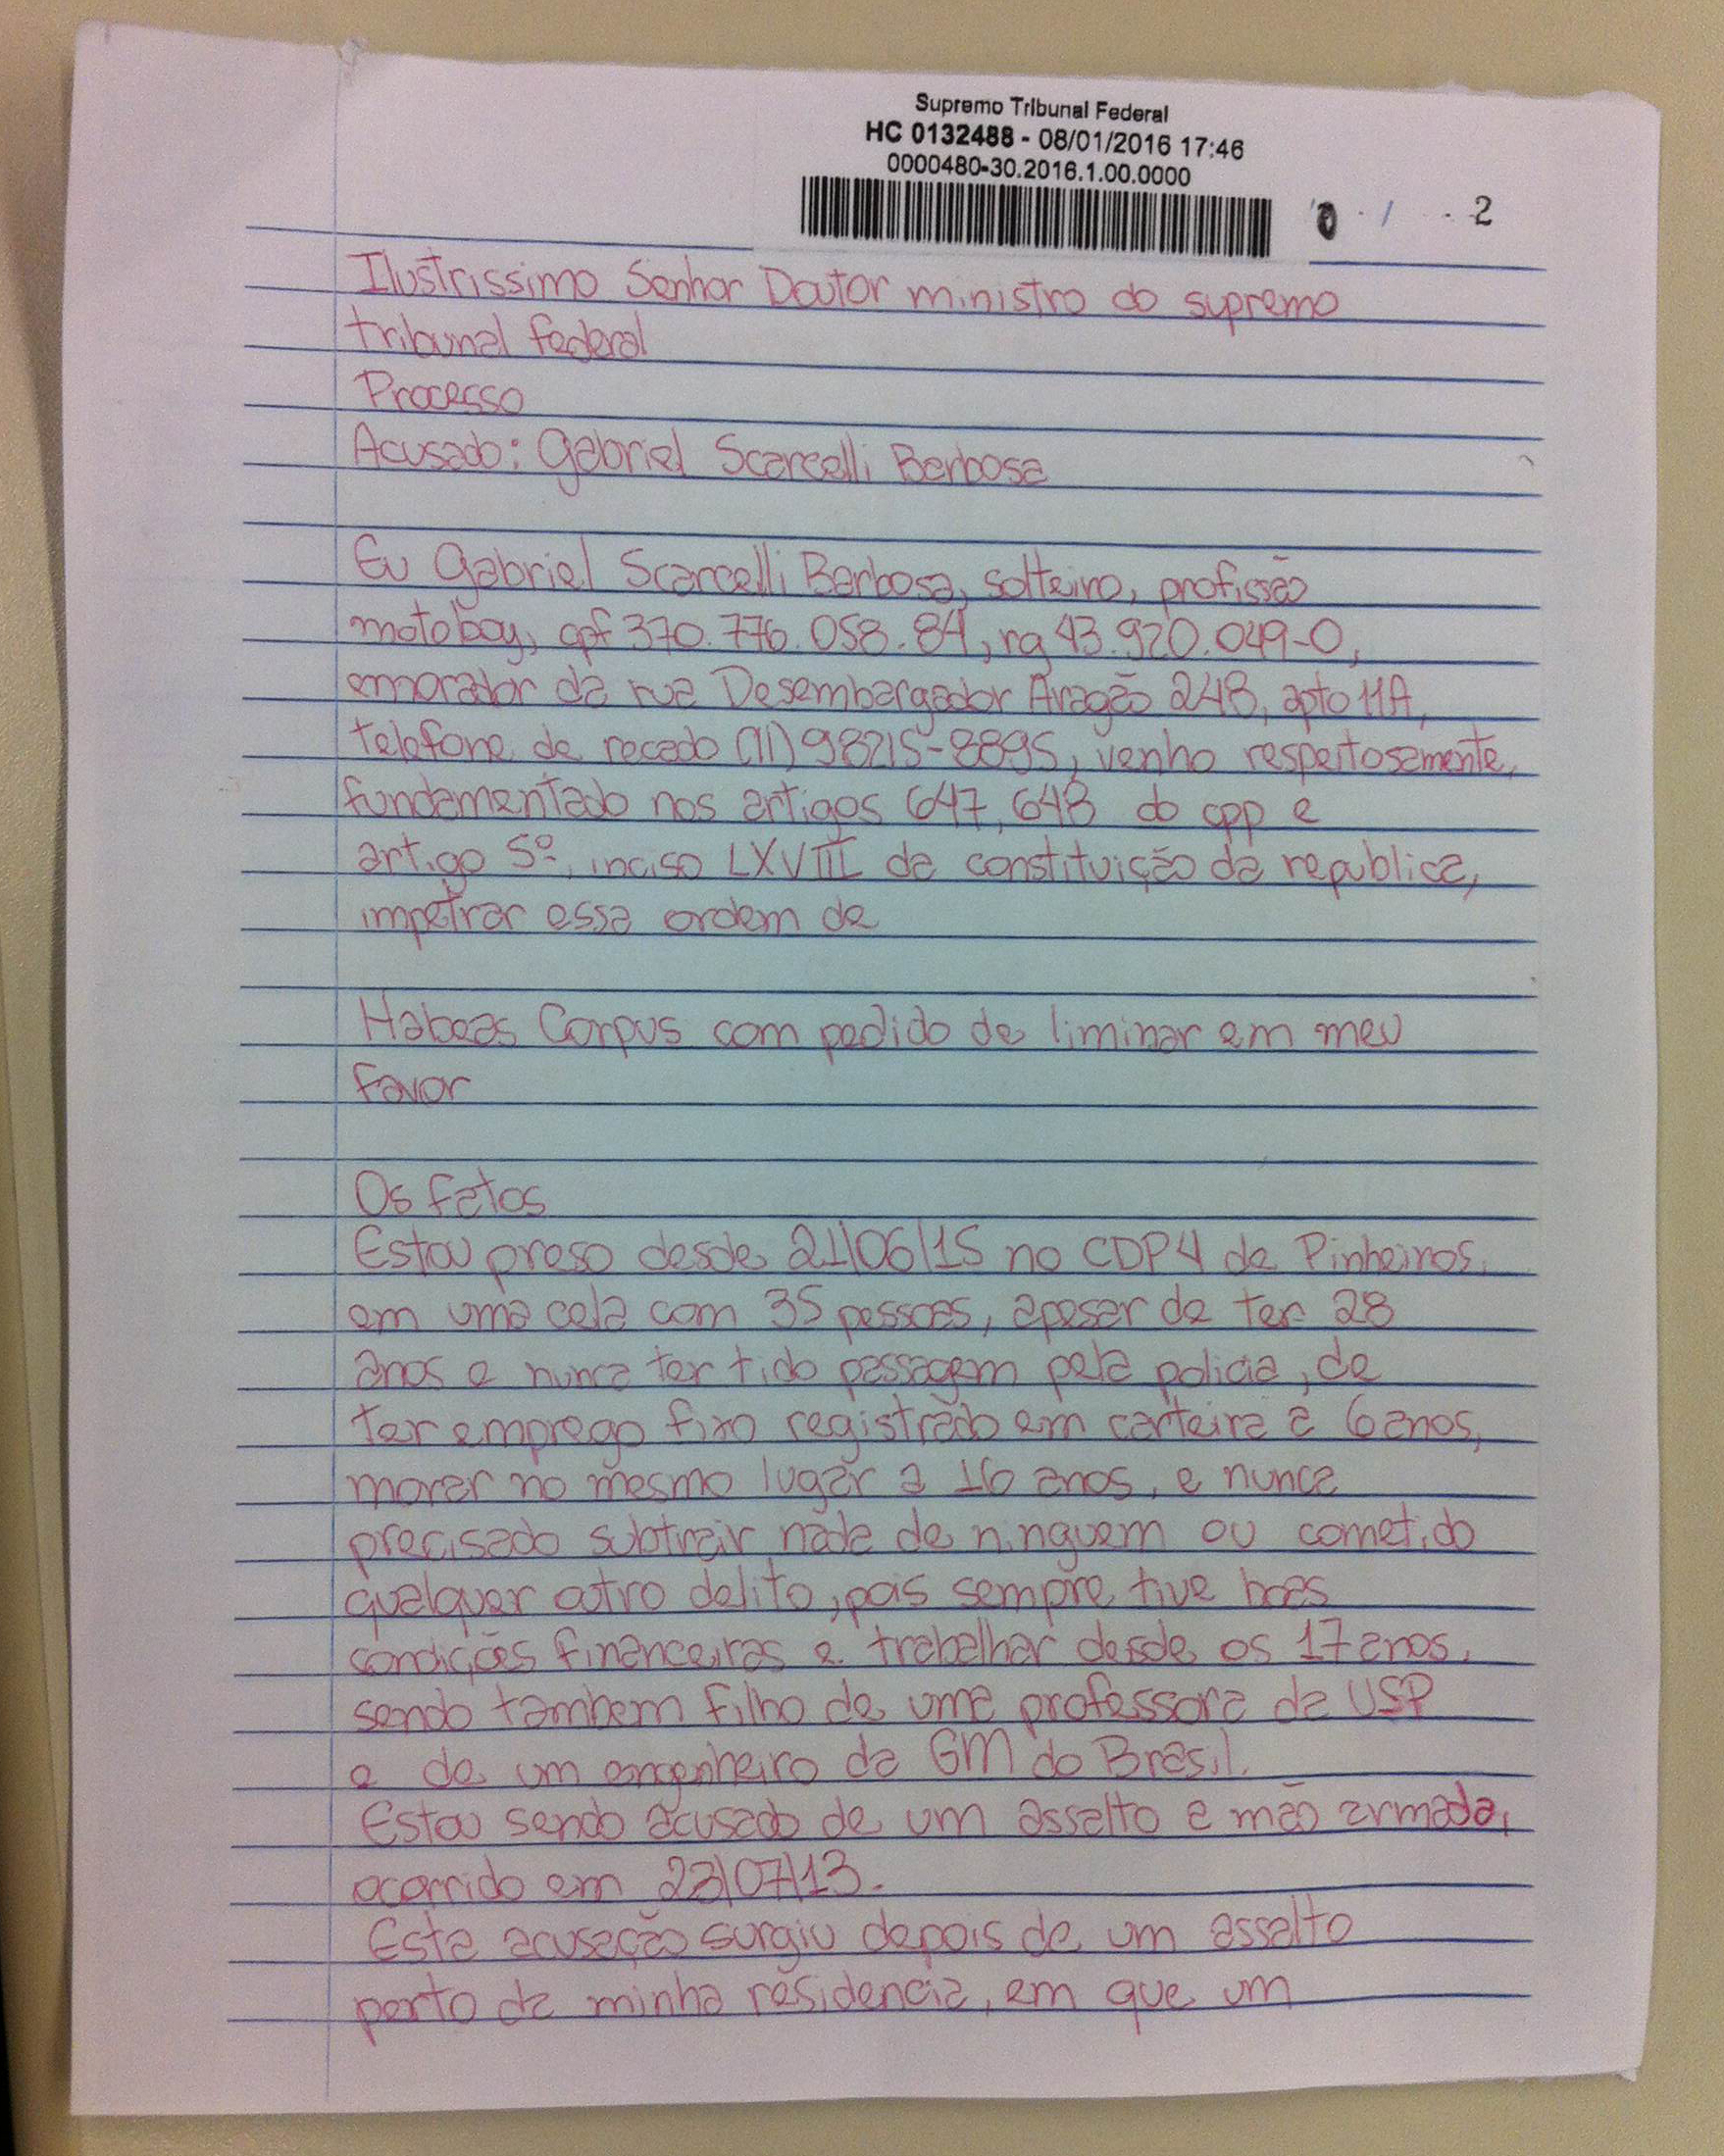 Supremo Tribunal Federal
HC 0132488 - 08/01/2016 17:46
0000480-30.2016.1.00.0000
2
Ilustrissimo Senhor Doutor ministro do supremo
tribunal federal
Processo
Acusado: Gabriel Scarcelli Barbosa
Eu Gabriel Scarcelli Barbosa, solteiro, profissão
motoboy, cpf 370.776.058-84, rg 43.920.049-0,
emorador da rua Desembargador Aragão 248, apto 11A,
telefone de recado (11) 98215-8895, venho respeitosamente,
fundamentado nos artigos 647, 648 do cpp e
artigo 5º, inciso LXVIII da constituição da republica,
impetrar essa ordem de
Habeas Corpus com pedido de liminar em meu
favor
Os fatos
Estou preso desde 21/06/15 no CDP4 de Pinheiros,
em uma cela com 35 pessoas, apesar de ter 28
anos e nunca ter tido passagem pela policia, de
ter emprego fixo registrado em carteira a 6 anos,
morar no mesmo lugar a 16 anos, e nunca
precisado subtrair nada de ninguem ou cometido
qualquer outro delito, pois sempre tive boas
condições financeiras e trabalhar desde os 17 anos,
sendo tambem filho de uma professora da USP
e de um engenheiro da GM do Brasil.
Estou sendo acusado de um assalto a mão armada,
ocorrido em 23/07/13.
Esta acusação surgiu depois de um assalto
perto da minha residencia, em que um